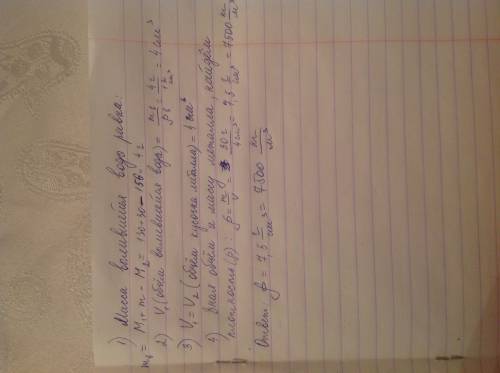 1) Масса вылившейся воды равна:
m₈ = M₁ + m - M₂ = 130 + 30 - 156 = 4 г
2) V₁ (объём вылившейся воды) = m₈/ρ₈ = 4 г / 1 г/см³ = 4 см³
3) V₁ = V₂ (объём кусочка металла) = 4 см³
4) Зная объём и массу металла, найдём
плотность (ρ): ρ = m/V = 30 г / 4 см³ = 7,5 г/см³ = 7500 кг/м³
Ответ: ρ = 7,5 г/см³ = 7500 кг/м³